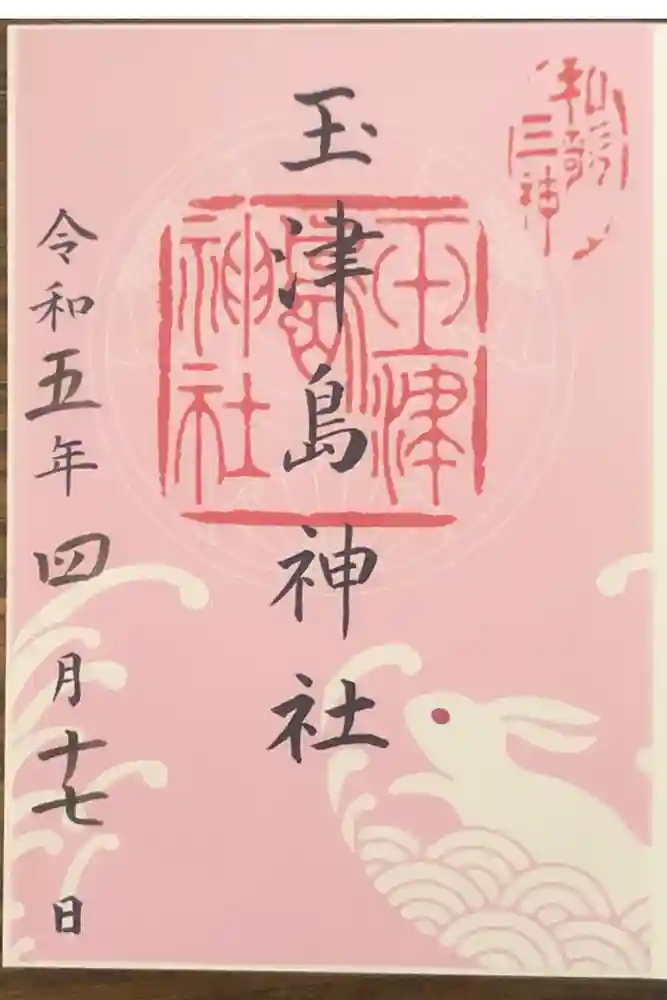 和歌
三神
玉津島神社
玉津
島
神社
令和五年四月十七日